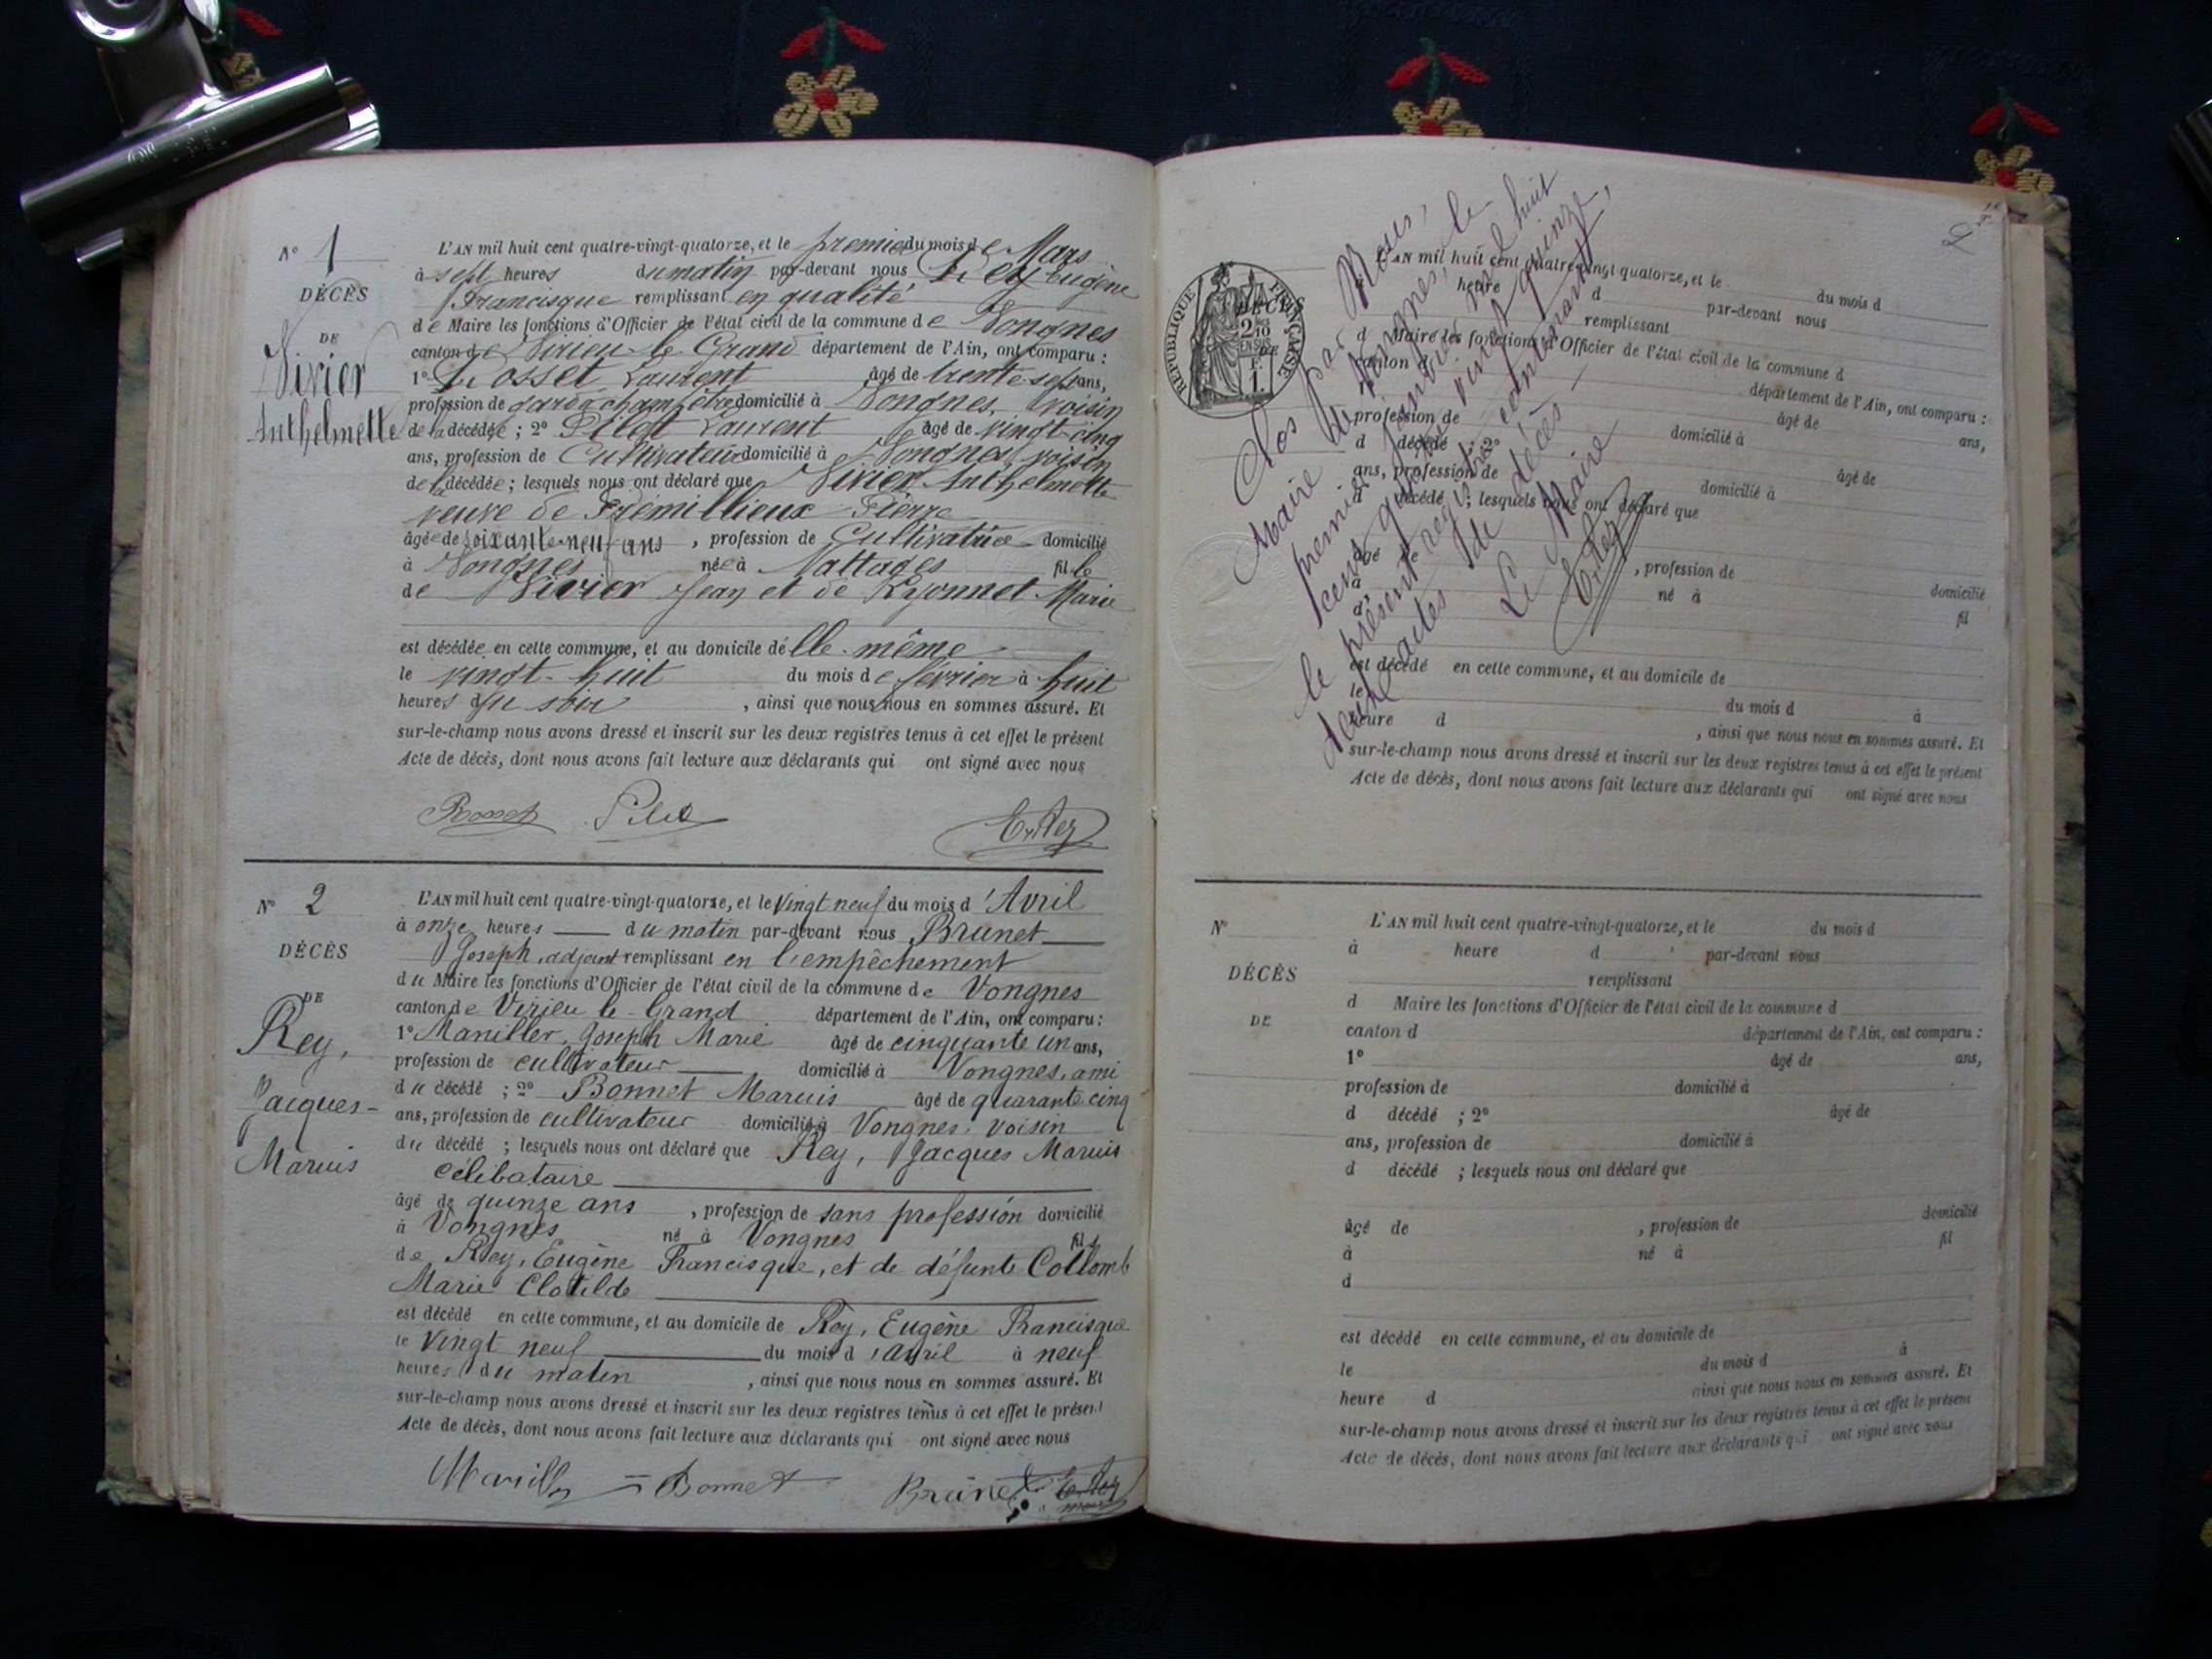 N° 1
DÉCÈS
DE
Vivier
Anthelmette
L'AN mil huit cent quatre-vingt-quatorze, et le premier du mois de Mars
à sept heures du matin par-devant nous Rey Eugène
Francisque remplissant en qualité
de Maire les fonctions d'Officier de l'état civil de la commune de Vongnes
canton de Virieu-le-Grand département de l'Ain, ont comparu :
1° Rosset Laurent âgé de trente-sept ans,
profession de garde champêtre domicilié à Vongnes, voisin
de la décédée ; 2° Pilot Laurent âgé de vingt-cinq
ans, profession de Cultivateur domicilié à Vongnes voisin
de la décédée ; lesquels nous ont déclaré que Vivier Anthelmette
veuve de Frémillieux Pierre
âgée de soixante-neuf ans , profession de Cultivatrice domicilié
à Vongnes née à Nattages fille
de Vivier Jean et de Royonnet Marie
est décédée en cette commune, et au domicile d'elle-même
le vingt-huit du mois de février à huit
heures du soir , ainsi que nous nous en sommes assuré. Et
sur-le-champ nous avons dressé et inscrit sur les deux registres tenus à cet effet le présent
Acte de décès, dont nous avons fait lecture aux déclarants qui ont signé avec nous
Rosset Pilot E. Rey
N° 2
DÉCÈS
DE
Rey,
Jacques-
Marius
L'AN mil huit cent quatre-vingt-quatorze, et le vingt neuf du mois d'Avril
à onze heures du matin par-devant nous Brunet
Joseph, adjoint remplissant en l'empêchement
du Maire les fonctions d'Officier de l'état civil de la commune de Vongnes
canton de Virieu le-Grand département de l'Ain, ont comparu :
1° Maniller, Joseph Marie âgé de cinquante un ans,
profession de cultivateur domicilié à Vongnes, ami
du décédé ; 2° Bonnet Marius âgé de quarante cinq
ans, profession de cultivateur domicilié à Vongnes, voisin
du décédé ; lesquels nous ont déclaré que Rey, Jacques Marius
célibataire
âgé de quinze ans , profession de sans profession domicilié
à Vongnes né à Vongnes fils
de Rey, Eugène Francisque, et de défunte Collomb
Marie Clotilde
est décédé en cette commune, et au domicile de Rey, Eugène Francisque
le vingt neuf du mois d'avril à neuf
heures du matin , ainsi que nous nous en sommes assuré. Et
sur-le-champ nous avons dressé et inscrit sur les deux registres tenus à cet effet le présent
Acte de décès, dont nous avons fait lecture aux déclarants qui ont signé avec nous
Bonnet Brunet
RÉPUBLIQUE FRANÇAISE
2 DES 10
EN SUS
1 F.
DÉCÈS
DE
Clos par Nous,
Maire de Vongnes, le
premier janvier mil huit
cent quatre vingt quinze,
le présent registre contenant
deux actes de décès
Le Maire
E. Rey
L'AN mil huit cent quatre-vingt-quatorze, et le du mois d
heure d par-devant nous
remplissant
d Maire les fonctions d'Officier de l'état civil de la commune d
canton d département de l'Ain, ont comparu :
âgé de ans,
profession de domicilié à
d décédé ; 2° âgé de
ans, profession de domicilié à
d décédé ; lesquels nous ont déclaré que
âgé de , profession de domicilié
à né à fil
d
est décédé en cette commune, et au domicile de
le du mois d à
heure d , ainsi que nous nous en sommes assuré. Et
sur-le-champ nous avons dressé et inscrit sur les deux registres tenus à cet effet le présent
Acte de décès, dont nous avons fait lecture aux déclarants qui ont signé avec nous
N°
DÉCÈS
DE
L'AN mil huit cent quatre-vingt-quatorze, et le du mois d
à heure d par-devant nous
remplissant
d Maire les fonctions d'Officier de l'état civil de la commune d
canton d département de l'Ain, ont comparu :
1° âgé de ans,
profession de domicilié à
d décédé ; 2° âgé de
ans, profession de domicilié à
d décédé ; lesquels nous ont déclaré que
âgé de , profession de domicilié
à né à fil
d
est décédé en cette commune, et au domicile de
le du mois d à
heure d ainsi que nous nous en sommes assuré. Et
sur-le-champ nous avons dressé et inscrit sur les deux registres tenus à cet effet le présent
Acte de décès, dont nous avons fait lecture aux déclarants qui ont signé avec nous